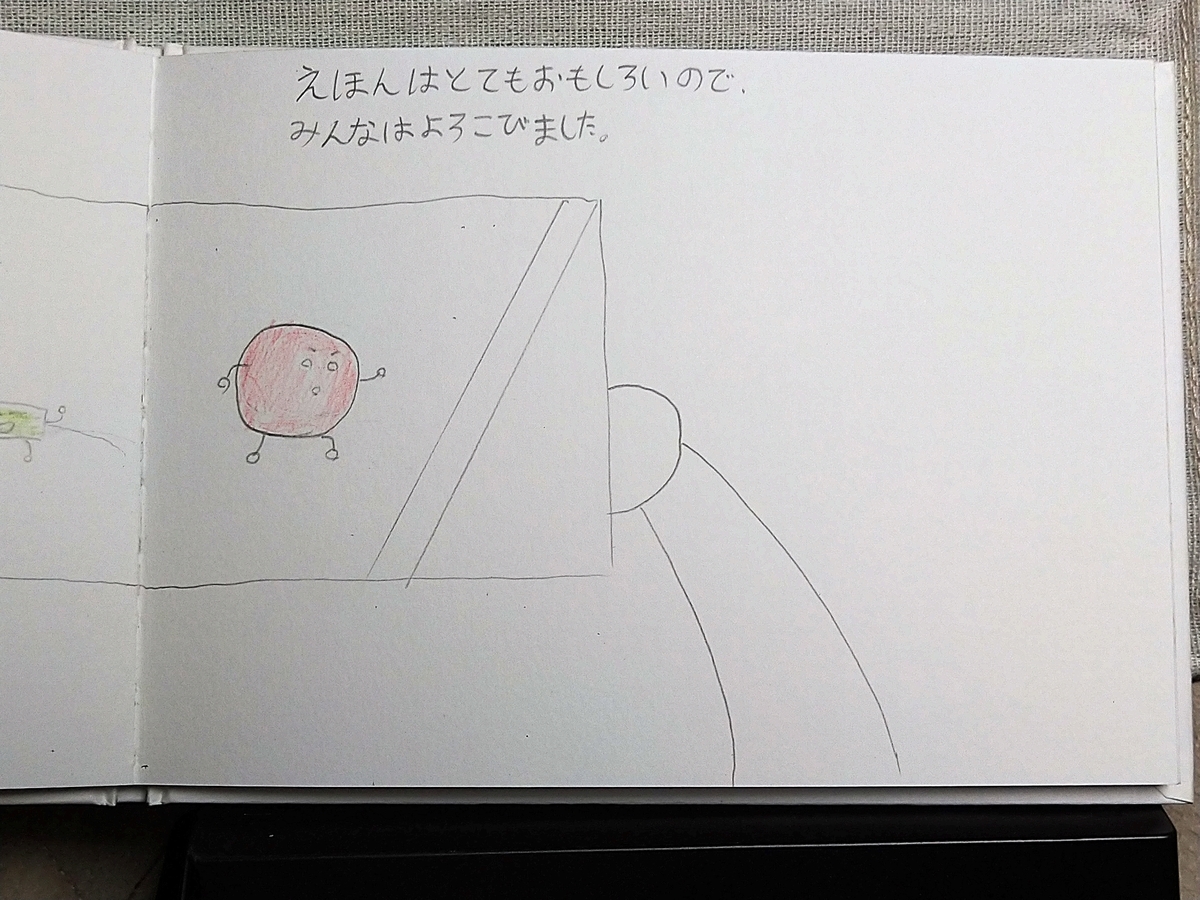 えほんはとてもおもしろいので、
みんなはよろこびました。